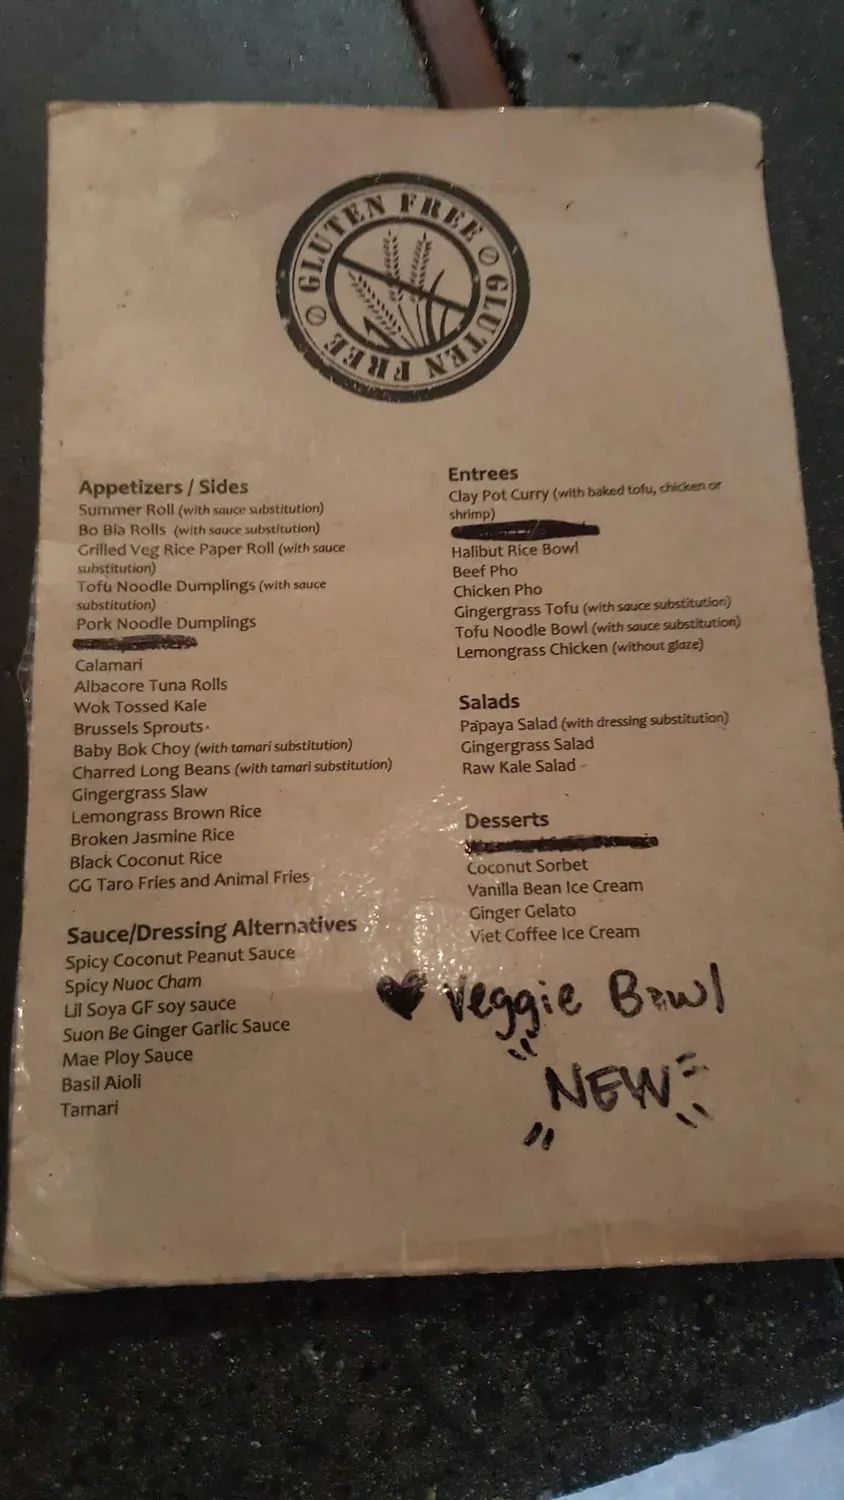 GLUTEN FREE
GLUTEN FREE
Appetizers / Sides
Summer Roll (with sauce substitution)
Bo Bia Rolls (with sauce substitution)
Grilled Veg Rice Paper Roll (with sauce
substitution)
Tofu Noodle Dumplings (with sauce
substitution)
Pork Noodle Dumplings
Calamari
Albacore Tuna Rolls
Wok Tossed Kale
Brussels Sprouts
Baby Bok Choy (with tamari substitution)
Charred Long Beans (with tamari substitution)
Gingergrass Slaw
Lemongrass Brown Rice
Broken Jasmine Rice
Black Coconut Rice
GG Taro Fries and Animal Fries
Sauce/Dressing Alternatives
Spicy Coconut Peanut Sauce
Spicy Nuoc Cham
Lil Soya GF soy sauce
Suon Be Ginger Garlic Sauce
Mae Ploy Sauce
Basil Aioli
Tamari
Entrees
Clay Pot Curry (with baked tofu, chicken or
shrimp)
Halibut Rice Bowl
Beef Pho
Chicken Pho
Gingergrass Tofu (with sauce substitution)
Tofu Noodle Bowl (with sauce substitution)
Lemongrass Chicken (without glaze)
Salads
Papaya Salad (with dressing substitution)
Gingergrass Salad
Raw Kale Salad
Desserts
Coconut Sorbet
Vanilla Bean Ice Cream
Ginger Gelato
Viet Coffee Ice Cream
Veggie Bowl
NEW